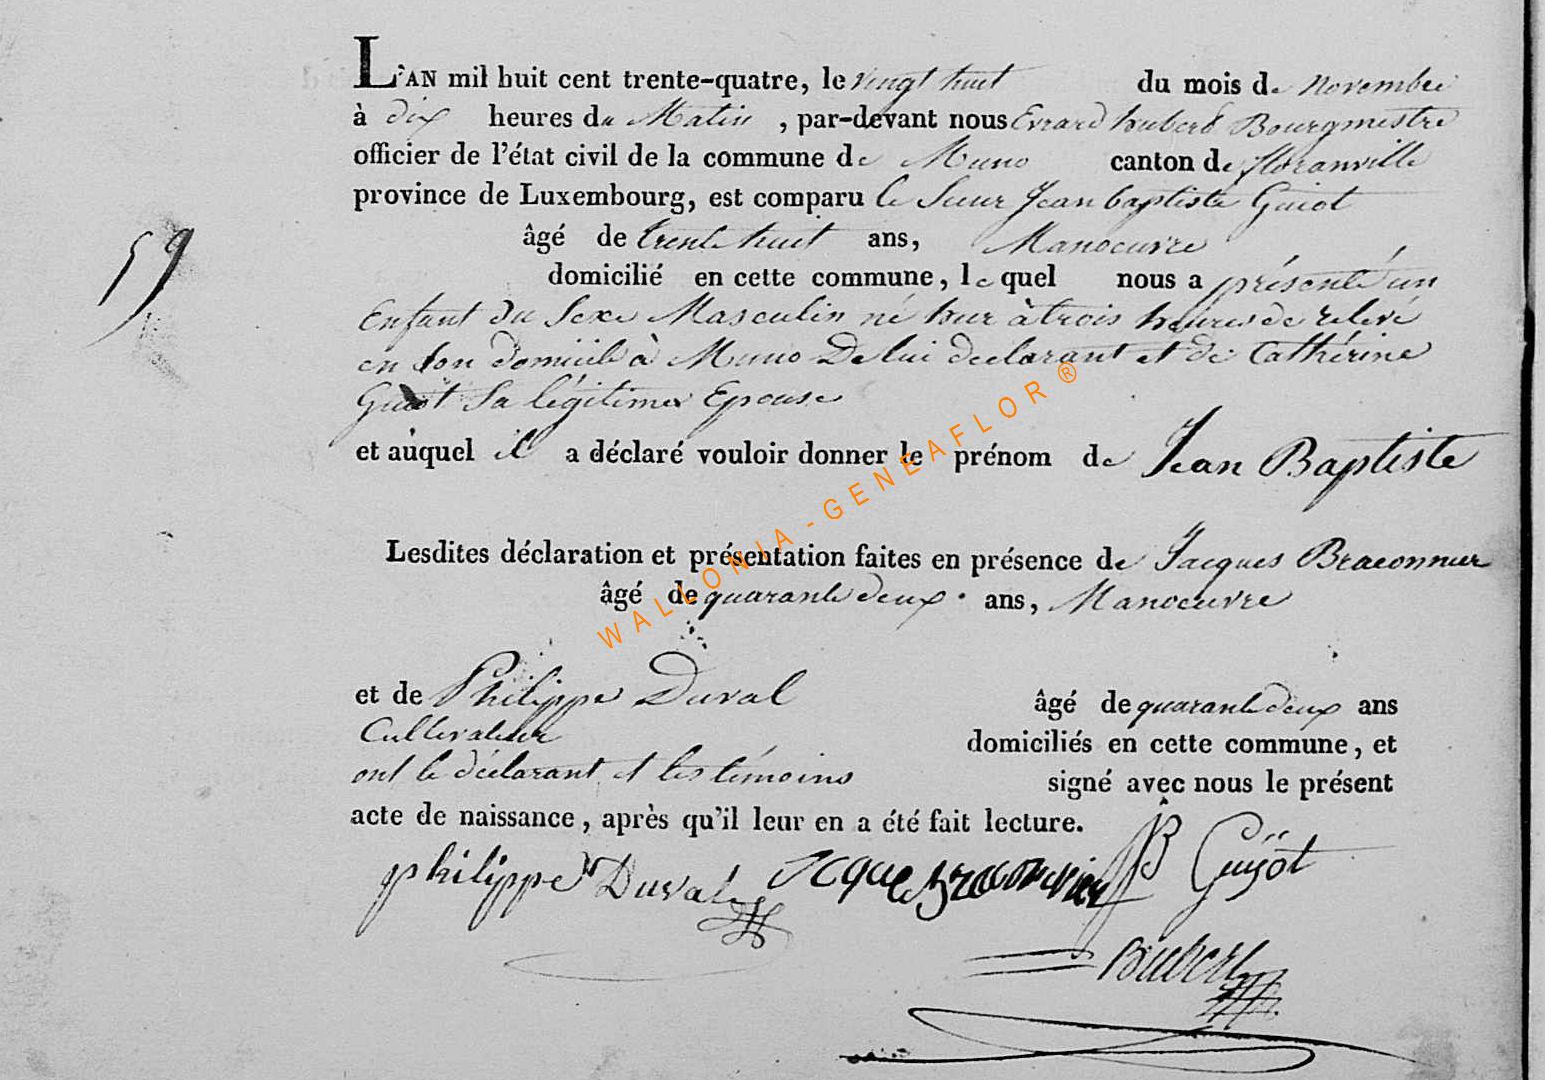 L'AN mil huit cent trente-quatre, le vingt huit du mois de novembre
à dix heures du Matin, par-devant nous Evrard hubert Bourgmestre
officier de l'état civil de la commune de Muno canton de floranville
province de Luxembourg, est comparu le Sieur Jean baptiste Guiot
âgé de trente huit ans, Manoeuvre
domicilié en cette commune, lequel nous a présenté un
59
Enfant du Sexe Masculin né hier à trois heures de relevé
en son domicile à Muno De lui declarant et de Cathérine
Guiot Sa légitime Epouse
et auquel il a déclaré vouloir donner le prénom de Jean Baptiste
Lesdites déclaration et présentation faites en présence de Jacques Braconnier
âgé de quarante deux ans, Manoeuvre
et de Philippe Duval âgé de quarante deux ans
Cultivateur domiciliés en cette commune, et
ont le déclarant et les témoins signé avec nous le présent
acte de naissance, après qu'il leur en a été fait lecture.
philippe Duval JB Guÿot
WALLONIA-GENEAFLOR®